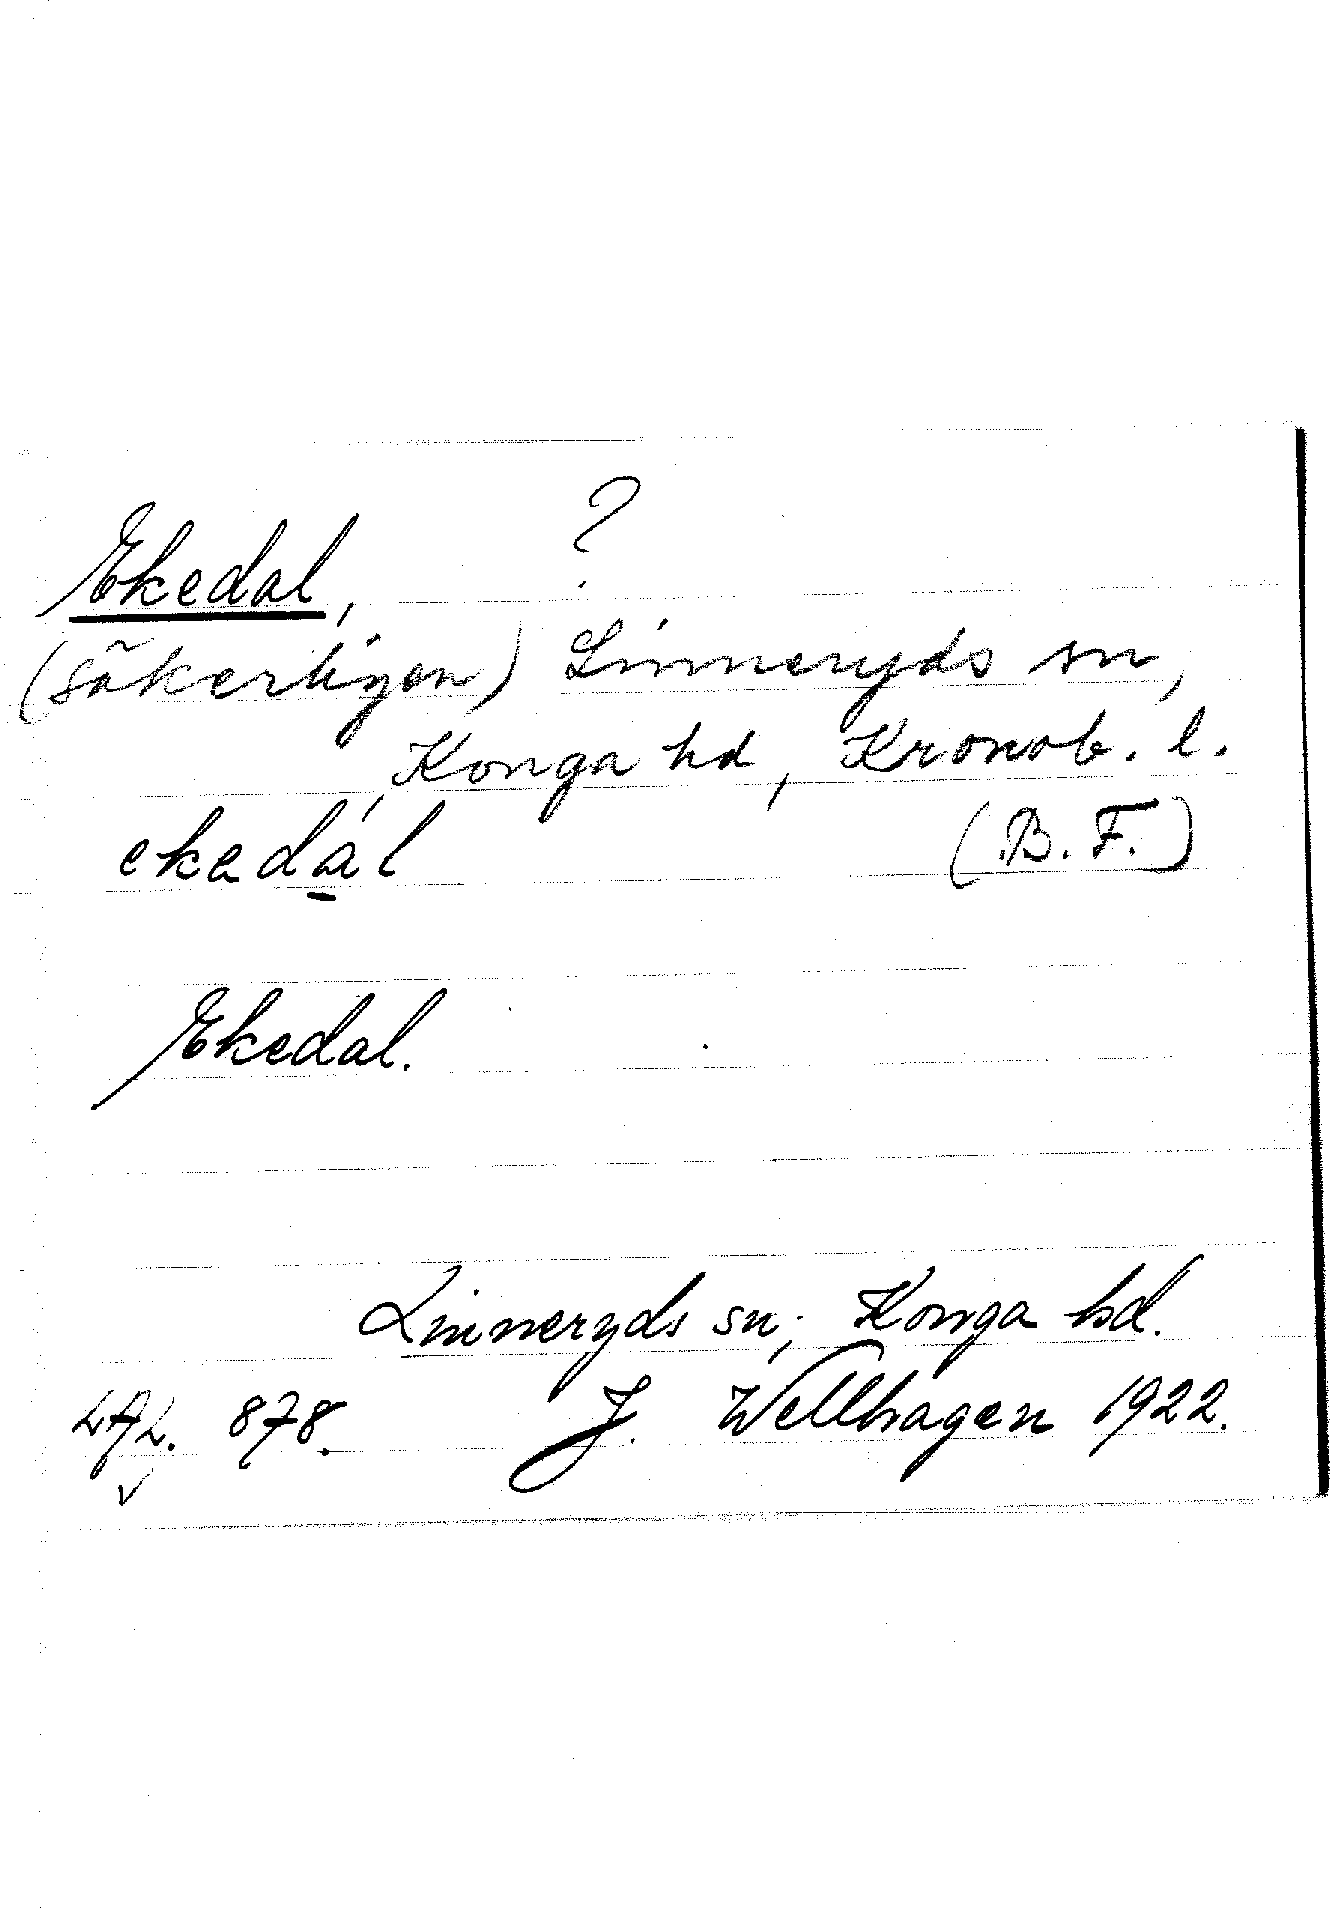 Ekedal, ?
(säkerligen) Linneryds sn,
Konga hd, Kronob. l.
ekadál (B. F.)
Ekedal.
Linneryds sn; Konga hd.
LAL. 878. J. Wellhagen 1922.